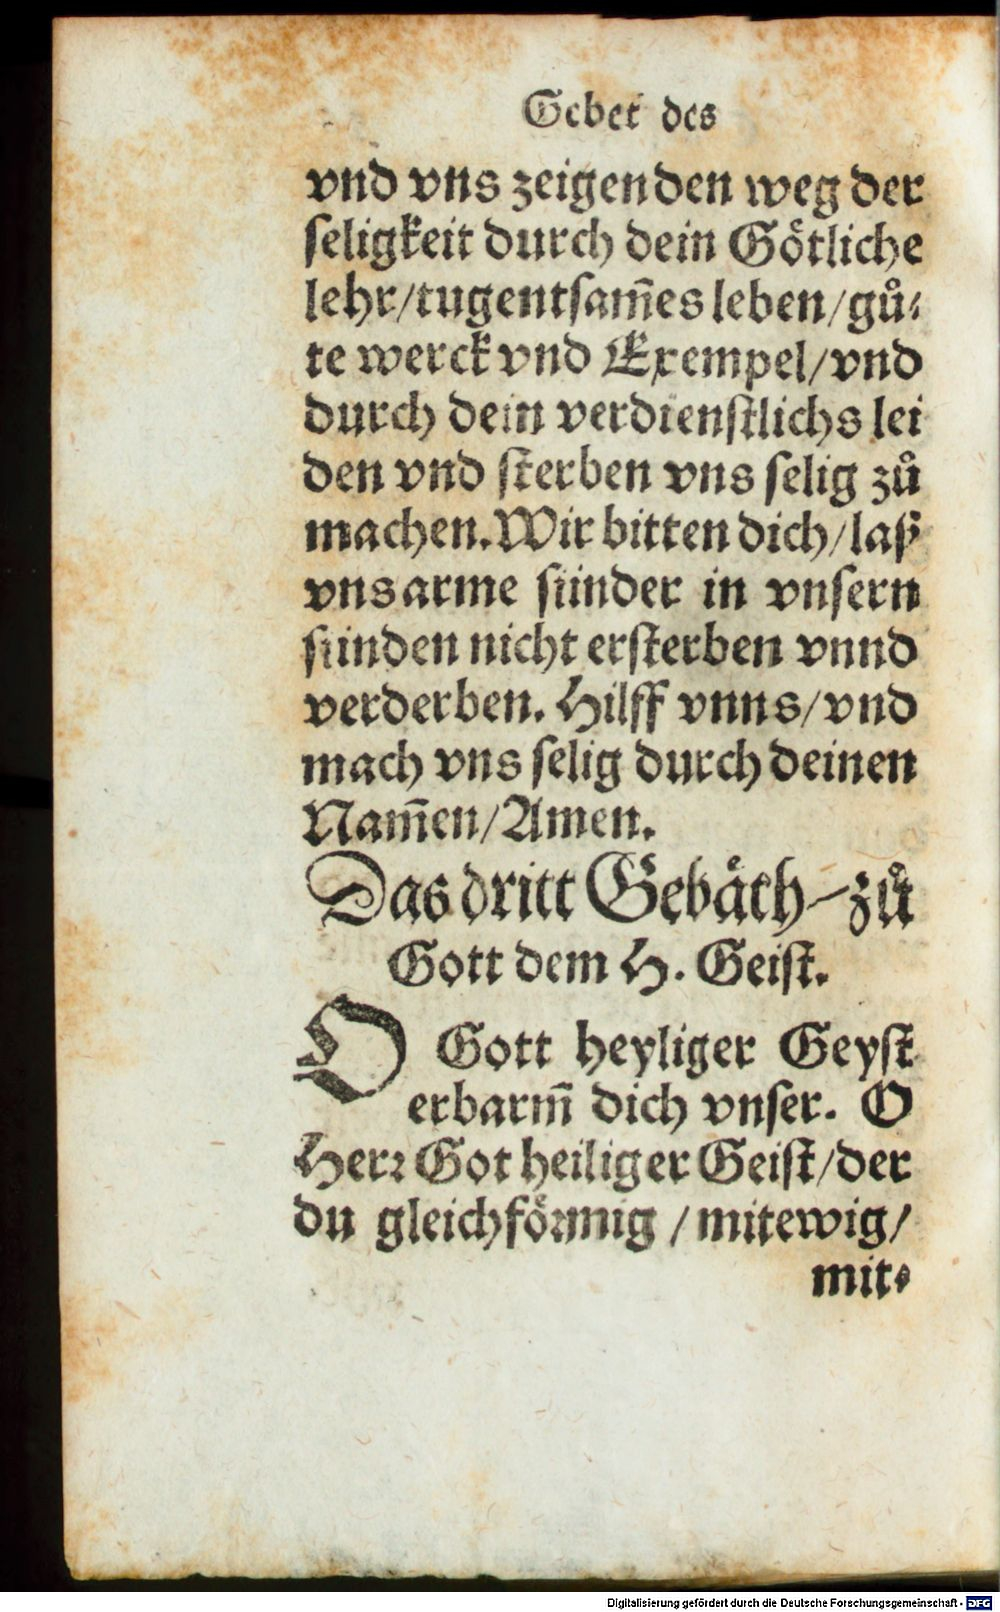 Gebet des
vnd vns zeigen den weg der
seligkeit durch dein Götliche
lehr/tugentsam̃es leben/gů⸗
te werck vnd Exempel/vnd
durch dein verdienstlichs lei
den vnd sterben vns selig zů
machen. Wir bitten dich/laß
vns arme sünder in vnsern
sünden nicht ersterben vnnd
verderben. Hilff vnns/vnd
mach vns selig durch deinen
Nam̃en/Amen.
Das dritt Gebäth zů
Gott dem H. Geist.
O Gott heyliger Geyst
erbarm̃ dich vnser. O
Herꝛ Got heiliger Geist/der
du gleichföꝛmig /mitewig/
mit⸗
Digitalisierung gefördert durch die Deutsche Forschungsgemeinschaft - DFG